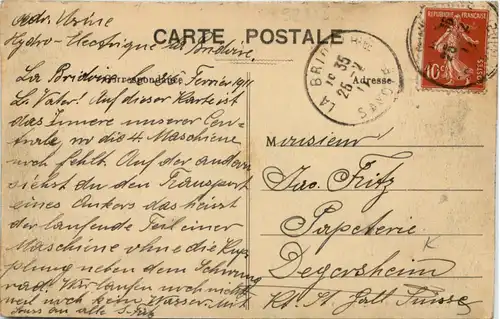 CARTE POSTALE
Correspondance
Adresse
RÉPUBLIQUE FRANÇAISE
10c
POSTES
LA BRIDOIRE
SAVOIE
Usine
Hydro-Electrique La Bridoire.
La Bridoire 25 Fevrier 1911
L. Vater! Auf dieser Karte ist
das Innere unserer Cen-
trale, wo die 4. Maschiene
noch fehlt. Auf der andern
siehst du den Transport
eines Ankers das heisst
der laufende Teil einer
Maschiene ohne die Kup-
plung neben dem Schwung
rad. Wir laufen noch nicht
weil noch kein Wasser. Mit
Gruss an alle
Monsieur
Jac. Fritz
Papeterie
Degersheim
Kt. St. Gall Suisse